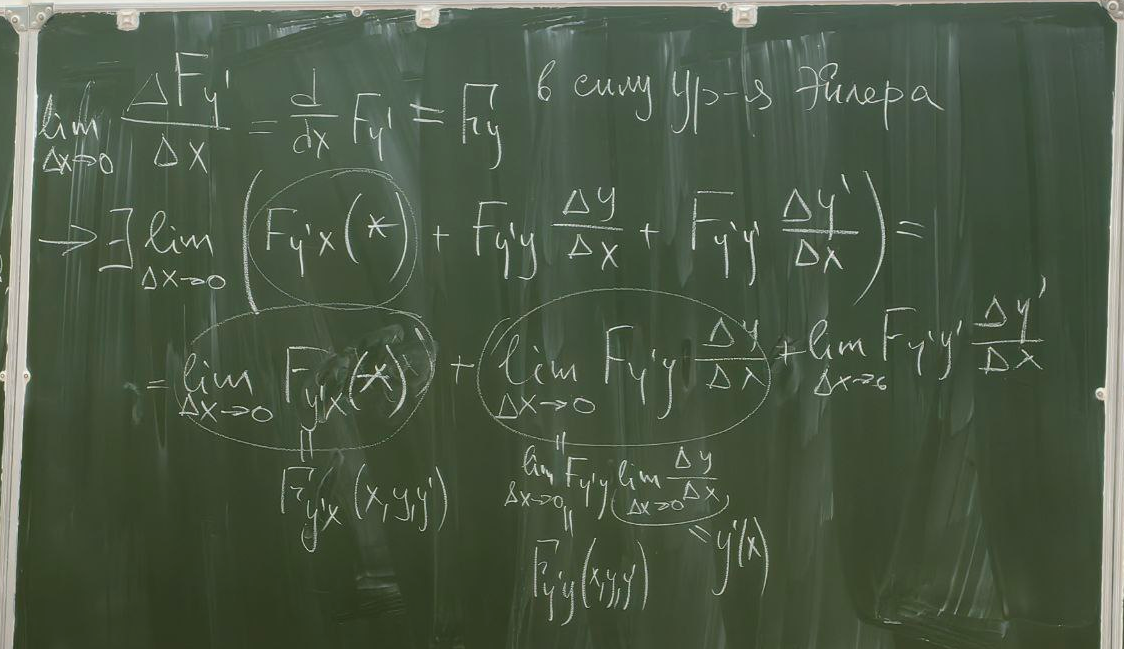 lim Δx→0 ΔF_y' / Δx = d/dx F_y' = F_y в силу ур-я Эйлера
→ ∃ lim Δx→0 ( F_y'x (*) + F_y'y Δy/Δx + F_y'y' Δy'/Δx ) =
= lim Δx→0 F_y'x (*) + lim Δx→0 F_y'y Δy/Δx + lim Δx→0 F_y'y' Δy'/Δx
|| ||
F_y'x (x,y,y') lim Δx→0 F_y'y lim Δx→0 Δy/Δx
|| = y'(x)
F_y'y (x,y,y')